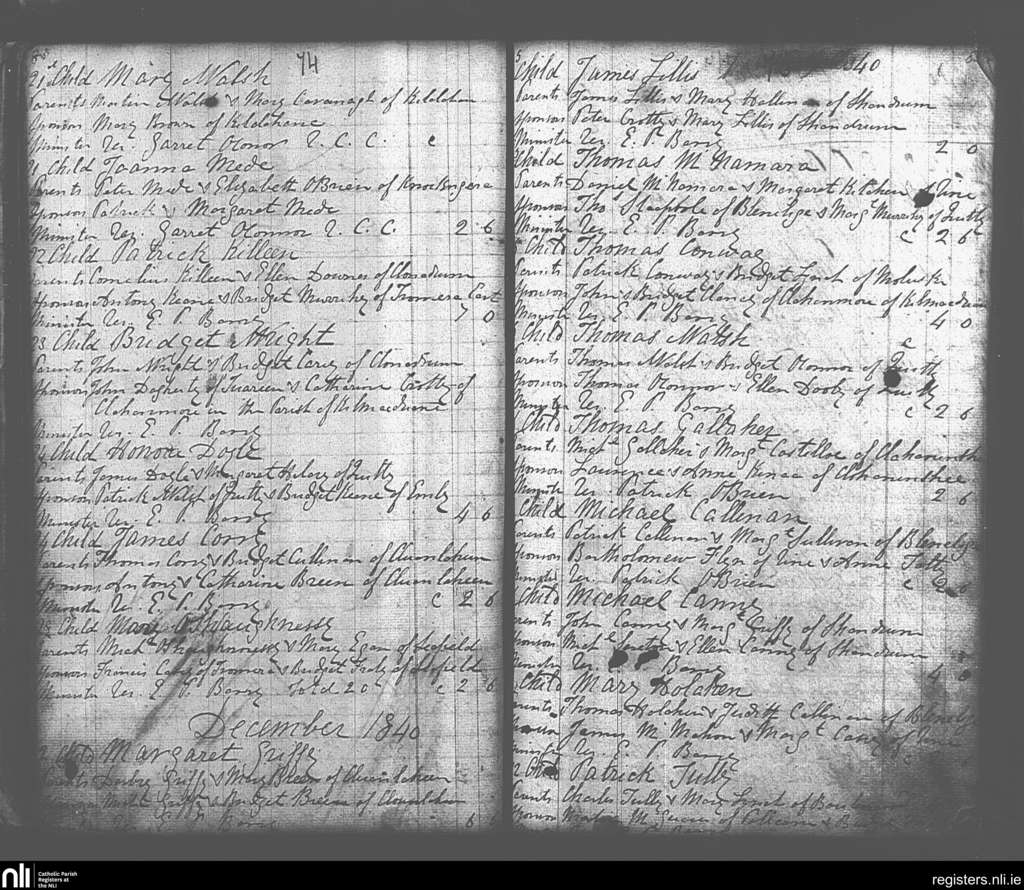 74
21st Child Mary Walsh
Parents Martin Walsh & Mary Cavanagh of Kildehan
Sponsors Mary Brown of Kildehane
Minister Rev. Garret OConor R. C. C. c
Child Joanna Mede
Parents Peter Mede & Elizabeth OBrien of Knockngera
Sponsors Patrick & Margaret Mede
Minister Rev. Garret OConnor R. C. C. 2 6
22 Child Patrick Killeen
Parents Cornelius Killeen & Ellen Downes of Clonadrum
Sponsors Antony Keane & Bridget Murrihy of Tromera East
Minister Rev. E. P. Barry 7 0
23 Child Bridget Wright
Parents John Wright & Bridget Carey of Clonadrum
Sponsors John Dogherty of & Catharine Crotty of
Clohanmore in the Parish of Kilmacduane
Minister Rev. E. P. Barry
Child Honora Doyle
Parents James Doyle & Margaret Helory of Quilty
Sponsors Patrick of Quilty & Bridget Keane of Emly
Minister Rev. E. P. Barry 4 6
Child James Conry
Parents Thomas Conry & Bridget Cullinan of Cluonlaheen
Sponsors Antony & Catharine Breen of Cluonlaheen
Minister Rev. E. P. Barry c 2 6
Child Mary OShaughnessy
Parents Michl OShaughnessy & Mary Egan of Seafield
Sponsors Francis Casey of Tromera & Bridget Fealy of Seafield
Minister Rev. E. P. Barry Total 20 c 2 6
December 1840
Child Margaret Griffy
Parents Darby Griffy & Mary Breen of Cluonlaheen
Griffy & Bridget Breen of Clounlehan
Rev. E. P. Barry 6
Child James Lillis 1840
Parents James Lillis & Mary Hallinan of Shandrum
Sponsors Peter Crotty & Mary Lillis of Shandrum
Minister Rev. E. P. Barry 2 0
Child Thomas McNamara
Parents Daniel McNamara & Margaret Kelehan of Vine
Sponsors Thos Slapbole of Blenelige & Margt Murrihy of Quilty
Minister Rev. E. P. Barry c 2 6
Child Thomas Conway
Parents Patrick Conway & Bridget Lynch of Moluska
Sponsors John & Bridget Clancy of Clohanmore of Kilmacduane
Minister Rev. E. P. Barry 4 0
Child Thomas Walsh
Parents Thomas Walsh & Bridget OConnor of Quilty
Sponsors Thomas OConnor & Ellen Dooly of Quilty
Minister Rev. E. P. Barry c 2 6
Child Thomas Gallaher
Parents Michl Gallaher & Margt Costelloe of Clohaninchee
Sponsors Laurence & Anne Kenae of Clohaninchee
Minister Rev. Patrick OBrien 2 6
Child Michael Callinan
Parents Patrick Callinan & Margt Sullivan of Blenelige
Sponsors Bartholomew Flyn of Vine & Anne Talty
Minister Rev. Patrick OBrien c 2 6
Child Michael Canny
Parents John Canny & Margt Griffy of Shandrum
Sponsors Michl & Ellen Canny of Shandrum
Minister Rev. Barry 4 0
Child Mary Holahen
Parents Thomas Holahen & Judith Callinan of Blenelige
Sponsors James McMahon & Margt Casey of
Minister Rev. E. P. Barry
Child Patrick Tully
Parents Charles Tully & Mary Lynch of
Sponsors
nli Catholic Parish Registers at the NLI
registers.nli.ie